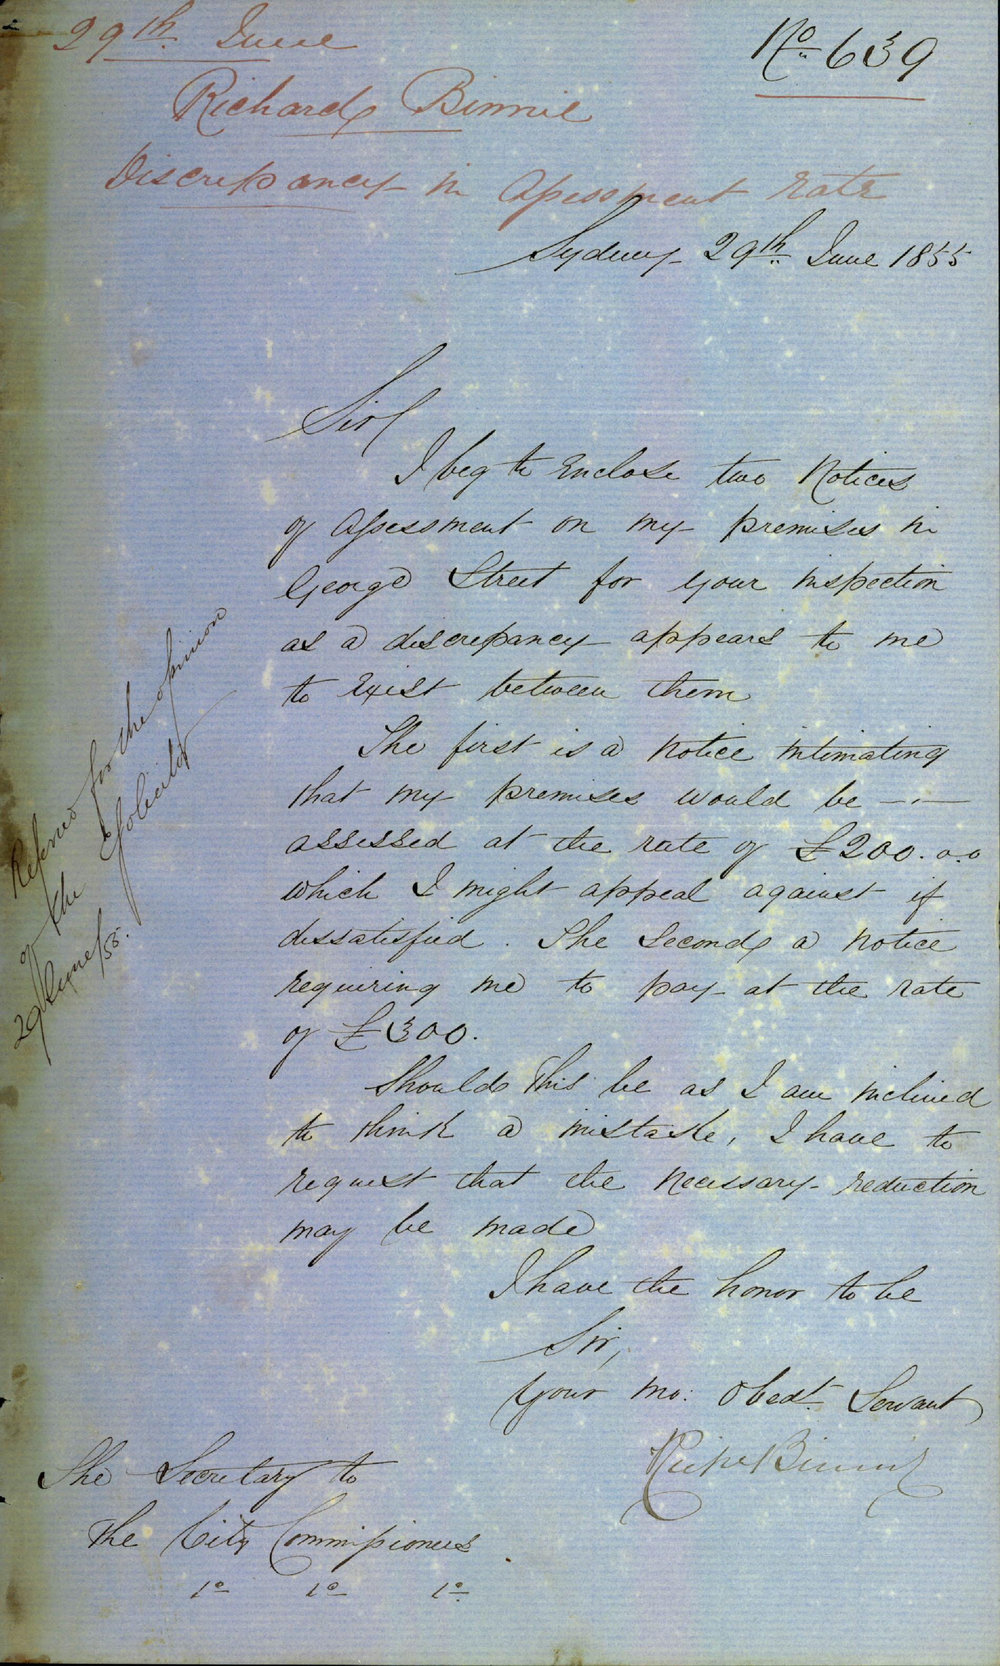 29th. June
No. 639
Richard Binnie
Discrepancy in Assessment rate
Sydney 29th. June 1855
Sir
I beg to Enclose two Notices
of Assessment on my premises in
George Street for your inspection
as a discrepancy appears to me
to exist between them
The first is a notice intimating
that my premises would be —·—
assessed at the rate of £200.0.0
which I might appeal against if
dissatisfied. The Second a notice
requiring me to pay at the rate
of £300.
Should this be as I am inclined
to think a mistake, I have to
request that the necessary reduction
may be made
I have the honor to be
Sir,
Your mo: Obedt. Servant
Binnie
The Secretary to
The City Commissioners
Referred for the opinion
of the Solicitor
29 June/55.